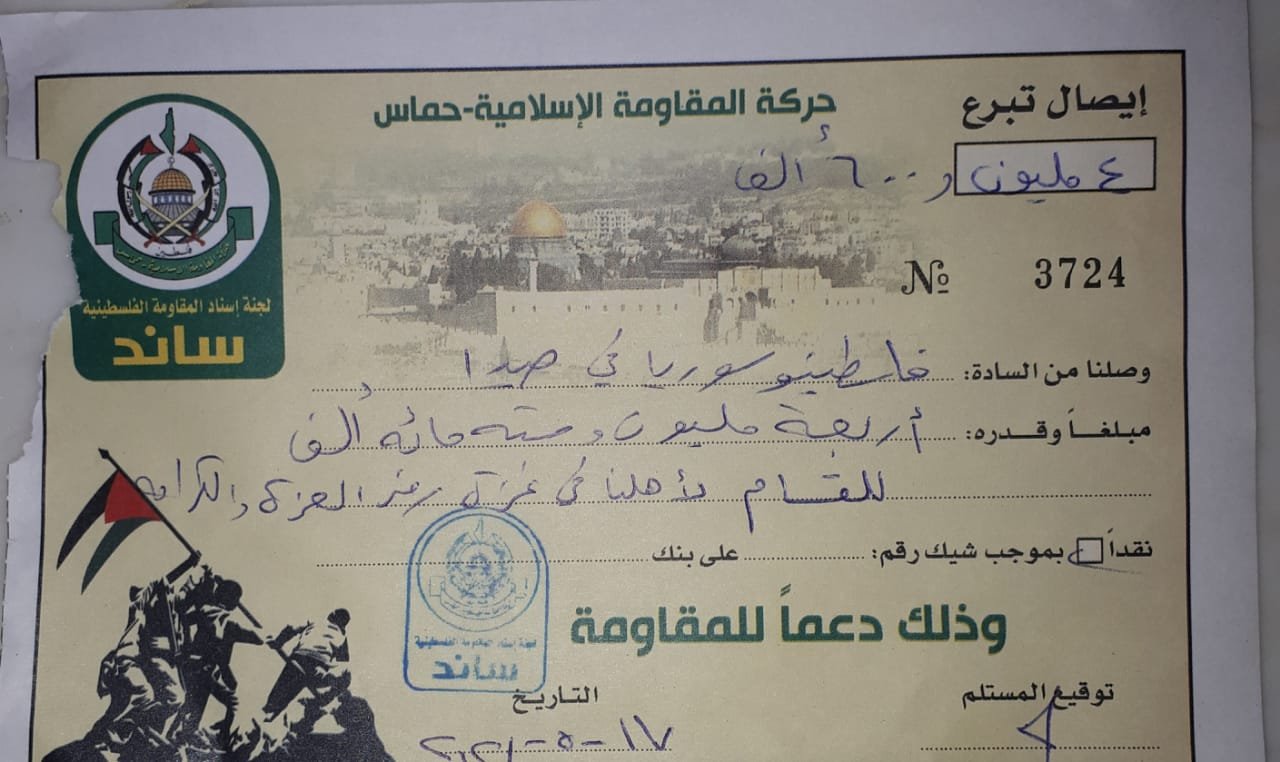 إيصال تبرع
حركة المقاومة الإسلامية-حماس
٤ مليون و ٦٠٠ ألف
№ 3724
فلسطين
حركة المقاومة الإسلامية حماس
لجنة إسناد المقاومة الفلسطينية
ساند
وصلنا من السادة: فلسطينيو سوريا في صيدا
مبلغاً وقدره: أربعة مليون وستة مائة ألف
للقسام لأهلنا في غزة رمز العزة والكرامة
نقداً بموجب شيك رقم: على بنك
وذلك دعماً للمقاومة
لجنة إسناد المقاومة الفلسطينية
ساند
توقيع المستلم
التاريخ
١٧-٥-٢٠٢١